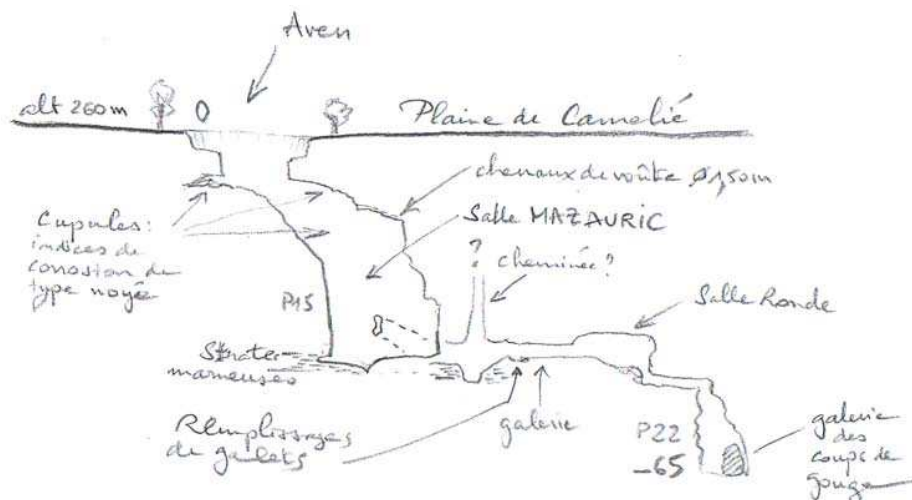 Aven
alt 260m
0
Plaine de Camelié
chenaux de voûte Ø1,50m
Cupules:
indices de
corrosion de
type noyée
Salle MAZAURIC
?
cheminée?
P15
Salle Ronde
Strates
marneuses
Remplissages
de galets
galerie
P22
-65
galerie
des
coups de
gouge